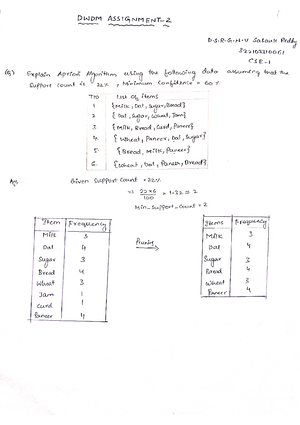 DWDM ASSIGNMENT-2
D.S.R.G.N.V Sakash Reddy
322103310061
CSE-1
Q1) Explain Apriori Algorithm using the following data assuming that the
Support count is 22%, Minimum Confidence = 60%
TID List of items
1 {Milk, Dal, Sugar, Bread}
2 {Dal, Sugar, Wheat, Jam}
3 {Milk, Bread, Curd, Paneer}
4. {Wheat, Paneer, Dal, Sugar}
5. {Bread, Milk, Paneer}
6. {Wheat, Dal, Paneer, Bread}
Given Support Count = 22%
=> 22x6/100 = 1.32 ≅ 2
Min_Support_Count = 2
Item Frequency
Milk 3
Dal 4
Sugar 3
Bread 4
Wheat 3
Jam 1
Curd 1
Paneer 4
Pruning
Items Frequency
Milk 3
Dal 4
Sugar 3
Bread 4
Wheat 3
Paneer 4